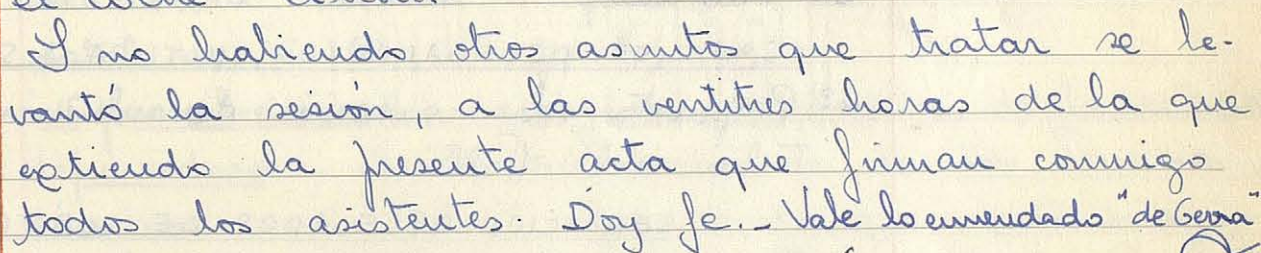 Y no habiendo otros asuntos que tratar se le-
vantó la sesión, a las ventitres horas de la que
extiendo la presente acta que firman conmigo
todos los asistentes. Doy fe.- Vale lo enmendado "de Gerra"